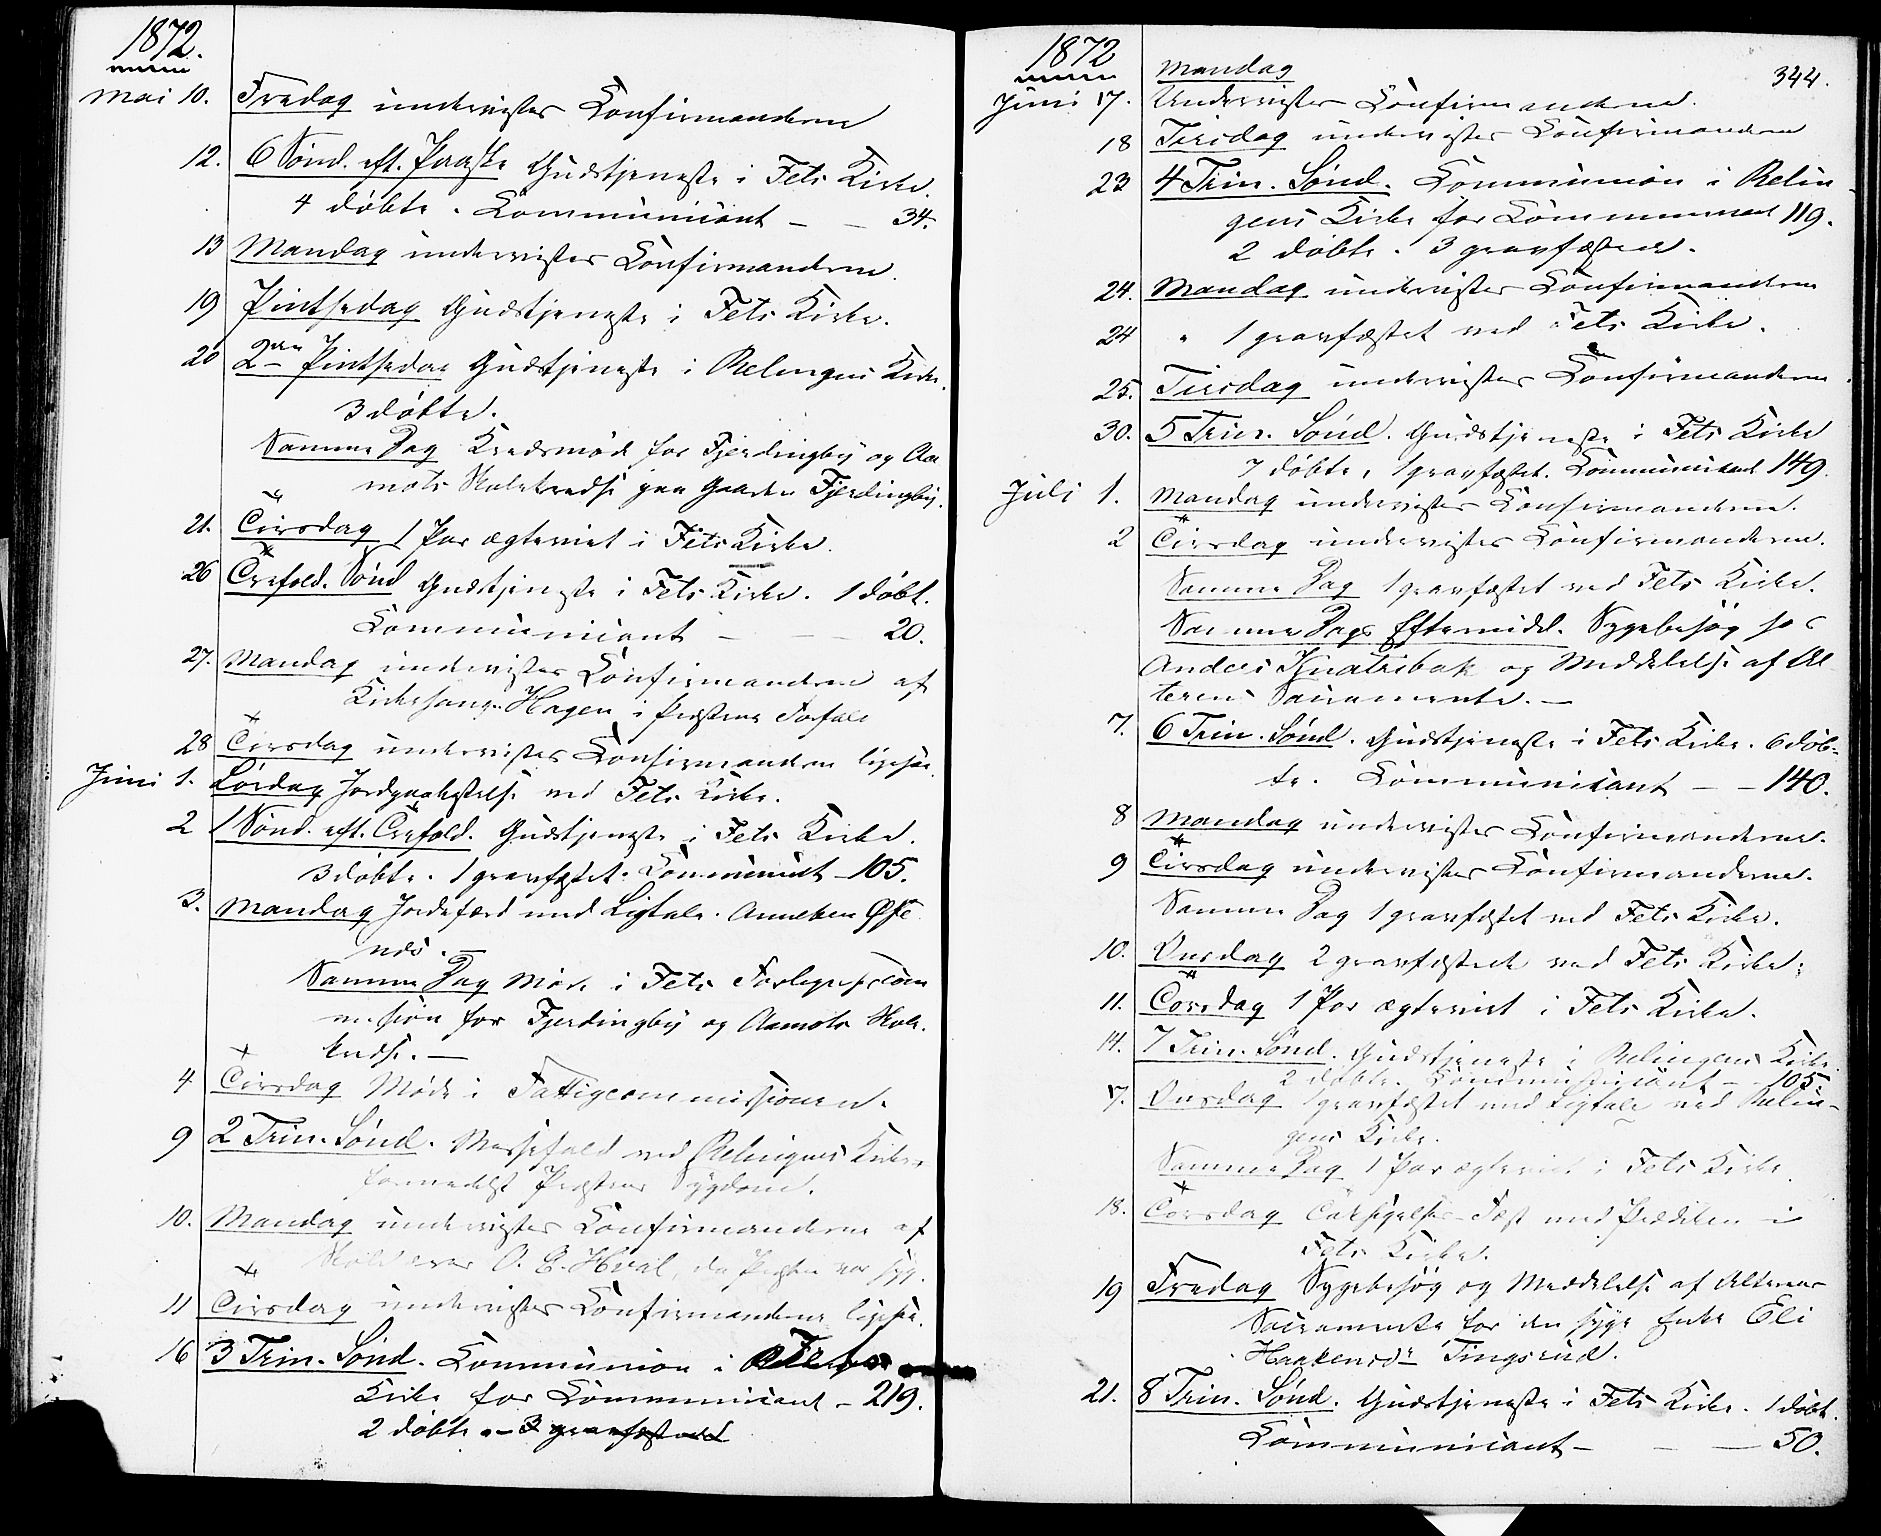 1872.
Mai 10. Fredag undervistes Confirmanderne
12. 6 Sønd. eft. Paaske Gudstjeneste i Fets Kirke.
4 døbte. Communicant — — 34.
13 Mandag undervistes Confirmanderne.
19 Pintsedag Gudstjeneste i Fets Kirke.
20 2den Pintsedag Gudstjeneste i Relingens Kirke.
3 døbte.
Samme Dag Kredsmøde for Fjerdingby og Aa
mots Skolekredse paa Gaarden Fjerdingby.
21. Tirsdag 1 Par ægteviet i Fets Kirke.
26 Trefold. Sønd Gudstjeneste i Fets Kirke. 1 døbt.
Communicant — — 20.
27. Mandag undervistes Confirmanderne af
Kirkesanger Hagen i Præstens Forfald
28 Tirsdag undervistes Confirmanderne ligesaa.
Juni 1. Lørdag Jordpaakastelse ved Fets Kirke.
2 1 Sønd. eft. Trefold. Gudstjeneste i Fets Kirke.
3 døbte. 1 gravfæstet. Communicant — 105.
3. Mandag Jordefærd med Ligtale. Anneken
næs. —
Samme Dag Møde i Fets Forligelsescom
mission for Fjerdingby og Aamots Skole
kredse. —
4 Tirsdag Møde i Fattigcommissionen.
9 2 Trin. Sønd. Messefald ved Relingens Kirke
formedelst Præstens Sygdom.
10. Mandag undervistes Confirmanderne af
Skolelærer O. E. Hval, da Præsten var syg.
11 Tirsdag undervistes Confirmanderne ligesaa.
16 3 Trin. Sønd. Communion i
Kirke for Communicant — 219.
2 døbte. — 3 gravfæstede
1872
344.
Mandag
Juni 17. Undervistes Confirmanderne.
18 Tirsdag undervistes Confirmanderne
23 4 Trin. Sønd. Communion i Relin-
gens Kirke for Communicant 119.
2 døbte. 3 gravfæstede.
24. Mandag undervistes Confirmanderne
24 " 1 gravfæstet ved Fets Kirke.
25. Tirsdag undervistes Confirmanderne.
30. 5 Trin. Sønd. Gudstjeneste i Fets Kirke
7 døbte, 1 gravfæstet. Communicant 149.
Juli 1. Mandag undervistes Confirmanderne.
2 Tirsdag undervistes Confirmanderne.
Samme Dag 1 gravfæstet ved Fets Kirke.
Samme Dags Eftermidd. Sygebesøg hos
Anders Knatribak og Meddelelse af Al
terens Sacramente. —
7. 6 Trin. Sønd. Gudstjeneste i Fets Kirke. 6 døb-
te. Communicant — — 140.
8 Mandag undervistes Confirmanderne.
9 Tirsdag undervistes Confirmanderne.
Samme Dag 1 gravfæstet ved Fets Kirke.
10. Onsdag 2 gravfæstede ved Fets Kirke.
11. Torsdag 1 Par ægteviet i Fets Kirke.
14. 7 Trin. Sønd. Gudstjeneste i Relingens Kirke.
2 døbte. Communicant — 105.
17. Onsdag 1 gravfæstet med Ligtale ved Relin-
gens Kirke.
Samme Dag 1 Par ægteviet i Fets Kirke.
18. Torsdag Taksigelses-Fest med Prædiken i
Fets Kirke.
19 Fredag Sygebesøg og Meddelelse af Alterens
Sacramente for den syge Enke Eli
Haakensdr Tingsrud.
21. 8 Trin. Sønd. Gudstjeneste i Fets Kirke. 1 døbt.
Communicant — — — 50.